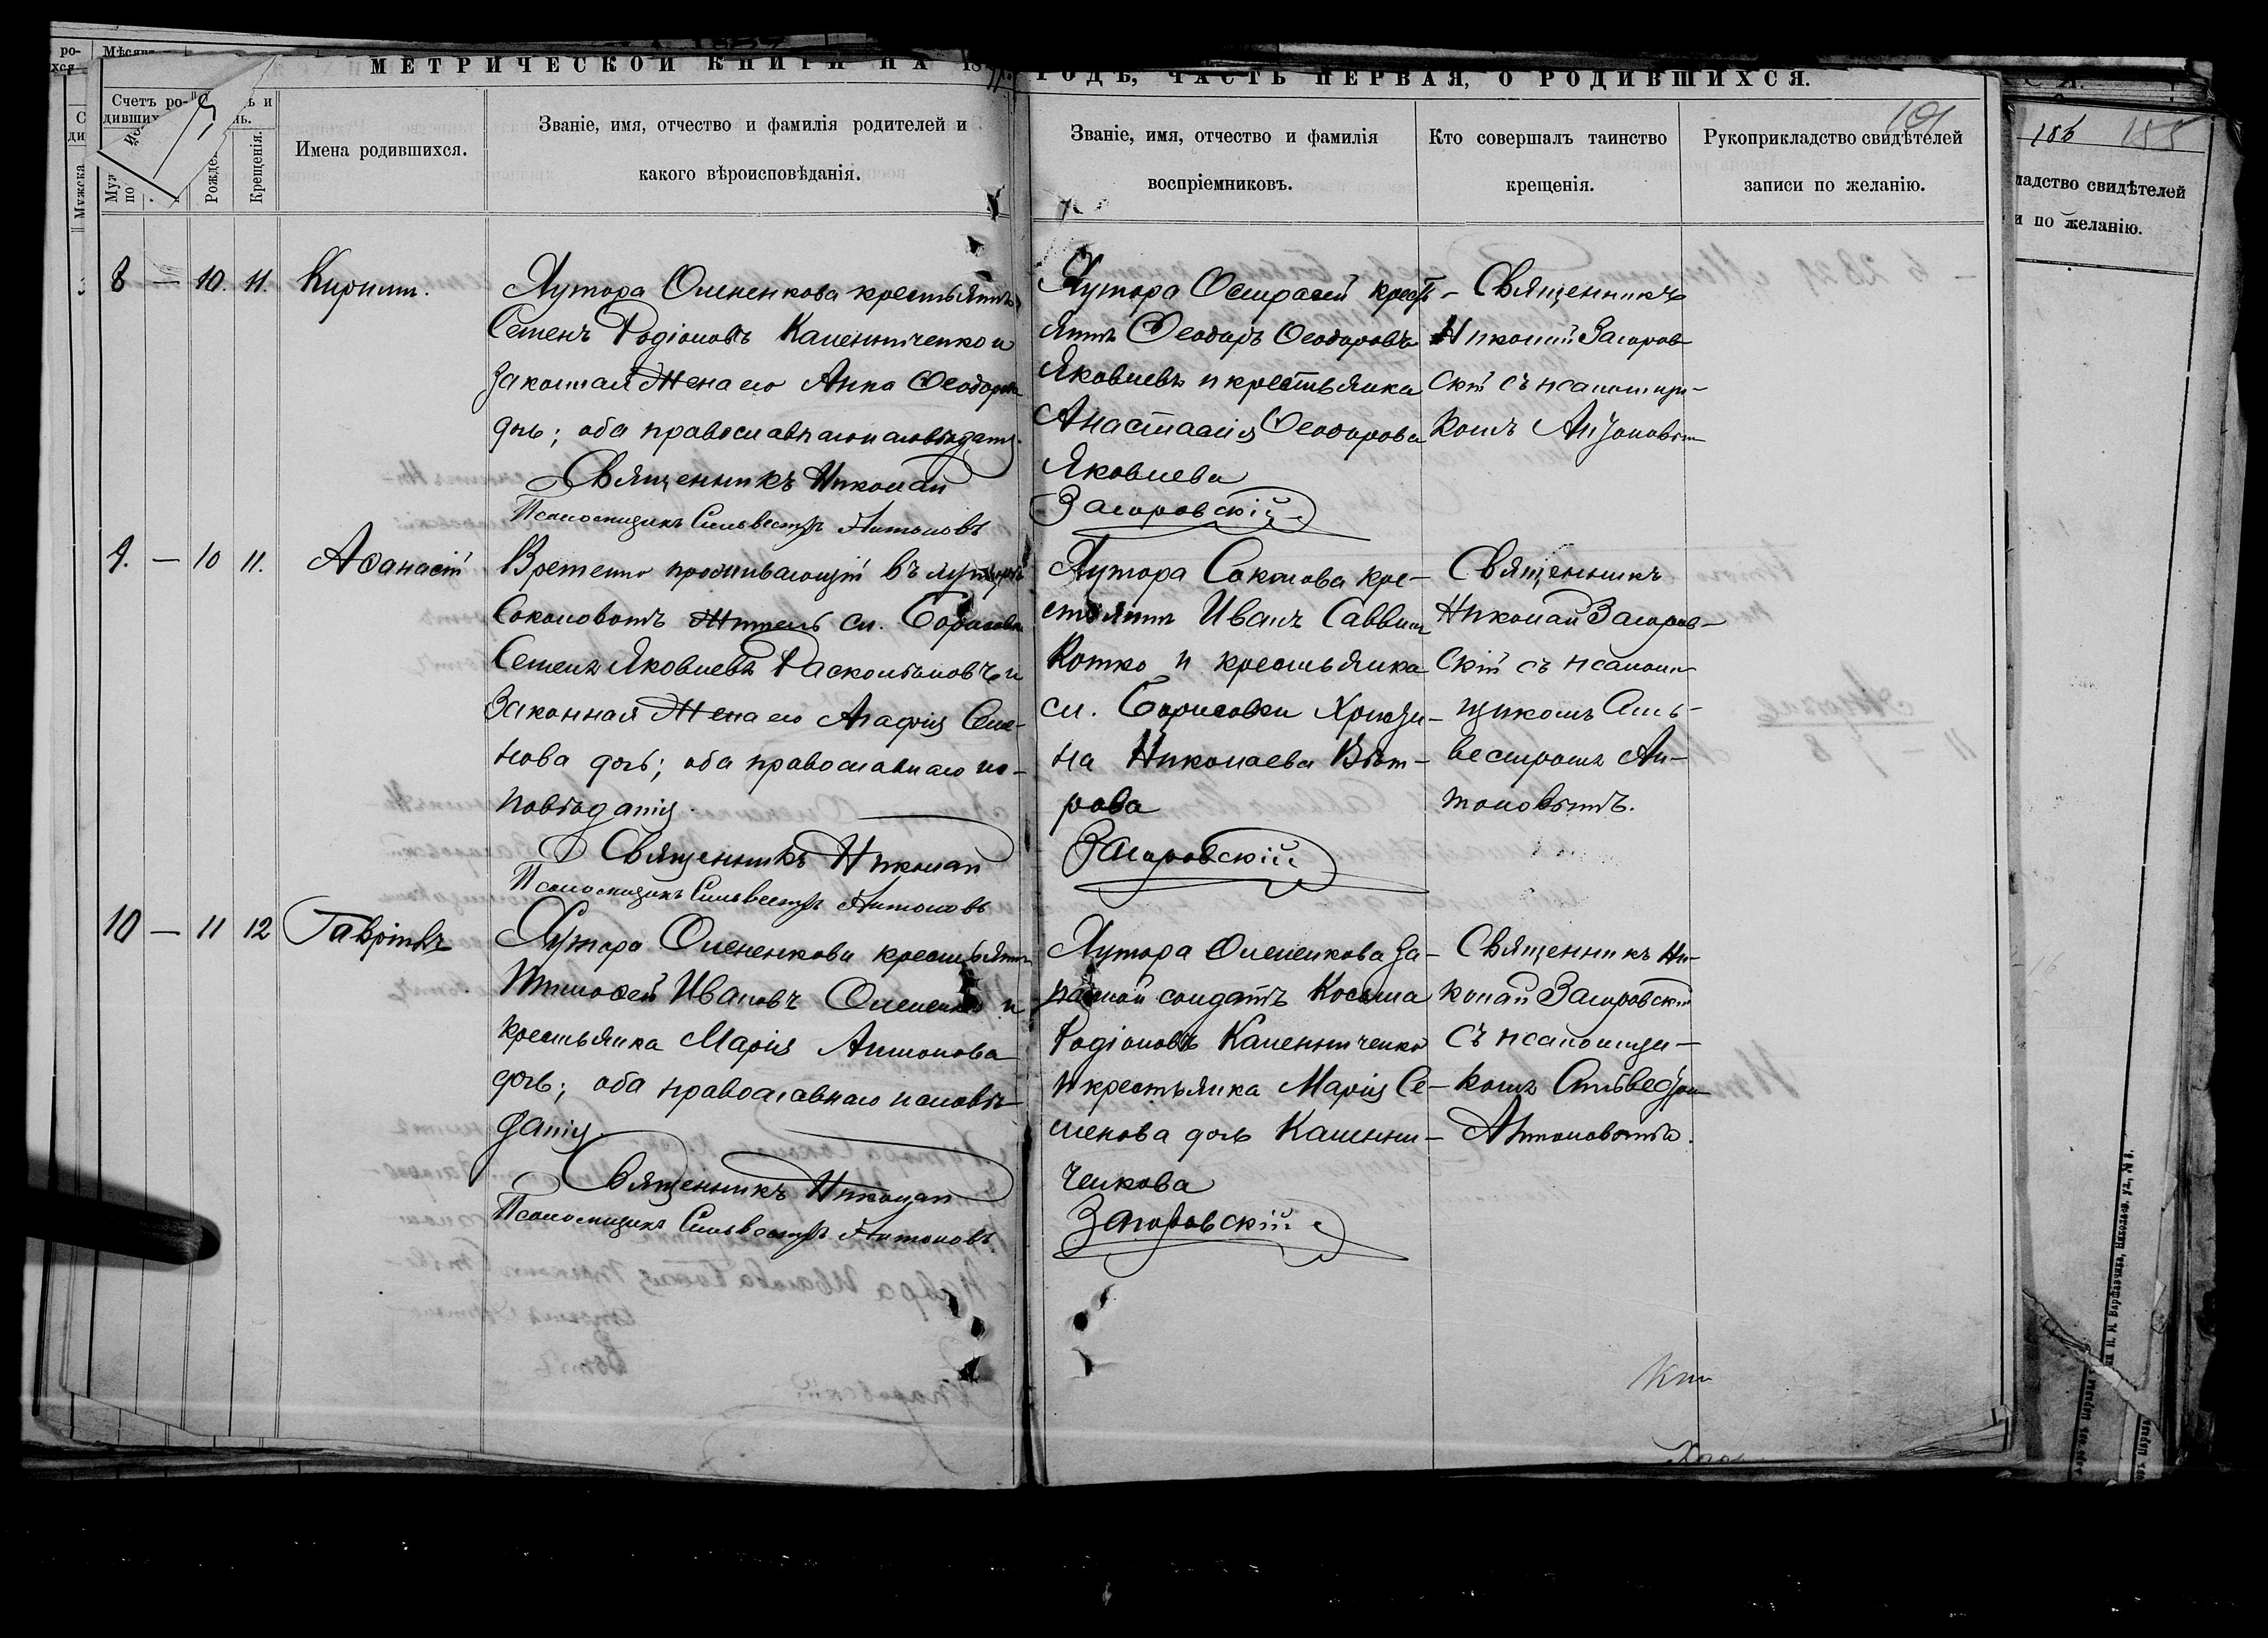 МЕТРИЧЕСКОЙ КНИГИ НА 18
ГОДЪ, ЧАСТЬ ПЕРВАЯ, О РОДИВШИХСЯ.
101
Счетъ ро-
дивших
Рожде
Крещенія.
Имена родившихся.
Званіе, имя, отчество и фамилія родителей и
какого вѣроисповѣданія.
Званіе, имя, отчество и фамилія
воспріемниковъ.
Кто совершалъ таинство
крещенія.
Рукоприкладство свидѣтелей
записи по желанію.
8 — 10. 11. Кирилл.
Хутора Олененкова крестьянинъ
Семенъ Родіоновъ Каленниченко и
законная жена его Анна Ѳеодорова
дочь; оба православнаго исповѣданія.
Священникъ Николай
Псаломщикъ Сильвестръ Антоновъ
Хутора крест-
янинъ Ѳеодоръ Ѳеодоровъ
Яковлевъ и крестьянка
Анастасія Ѳеодорова
Яковлева
Загоровскій
Священникъ
Николай Загоров-
скій съ псаломщи-
комъ Антоновым
9. — 10 11. Аѳанасій
Временно проживающій въ хуторѣ
Соколовомъ житель сл. Борисовки
Семенъ Яковлевъ и
законная жена его Агафія Семе-
нова дочь; оба православнаго ис-
повѣданія.
Священникъ Николай
Псаломщикъ Сильвестръ Антоновъ
Хутора Соколова кре-
стьянинъ Иванъ Саввинъ
Котко и крестьянка
сл. Борисовки Христи-
на Николаева Вѣт-
рова
Загоровскій
Священникъ
Николай Загоров-
скій съ псалом-
щикомъ Силь-
вестромъ Ан-
тоновымъ.
10 — 11 12 Гавріилъ
Хутора Олененкова крестьянинъ
Тимоѳей Ивановъ Олененко и
крестьянка Марія Антонова
дочь; оба православнаго исповѣ-
данія.
Священникъ Николай
Псаломщикъ Сильвестръ Антоновъ
Хутора Олененкова за-
пасной солдатъ Косьма
Родіоновъ Каленниченко
и крестьянка Марія Се-
менова дочь Каленни-
ченкова
Загоровскій
Священникъ Ни-
колай Загоровскій
съ псаломщи-
комъ Сильвестром
Антоновымъ.
186 185
ладство свидѣтелей
и по желанію.